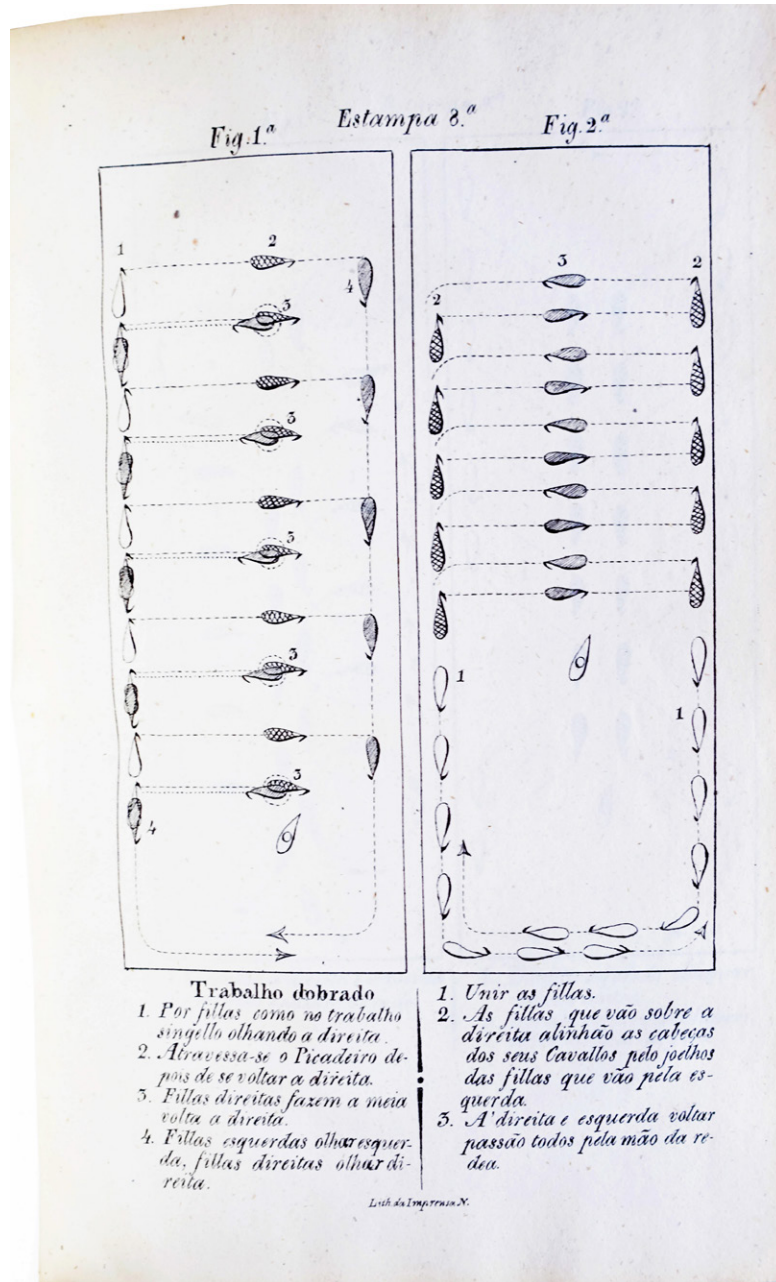 Estampa 8.ª
Fig. 1.ª
Fig. 2.ª
1
2
4
3
3
3
3
3
4
3
2
2
1
1
Trabalho dobrado
1. Por fillas como no trabalho
singello olhando a direita.
2. Atravessa-se o Picadeiro de-
pois de se voltar a direita.
3. Fillas direitas fazem a meia
volta a direita.
4. Fillas esquerdas olhar esquer-
da, fillas direitas olhar di-
reita.
1. Unir as fillas.
2. As fillas que vão sobre a
direita alinhão as cabeças
dos seus Cavallos pelo joelhos
das fillas que vão pela es-
querda.
3. A' direita e esquerda voltar
passão todos pela mão da re-
dea.
Lith. da Imprensa N.